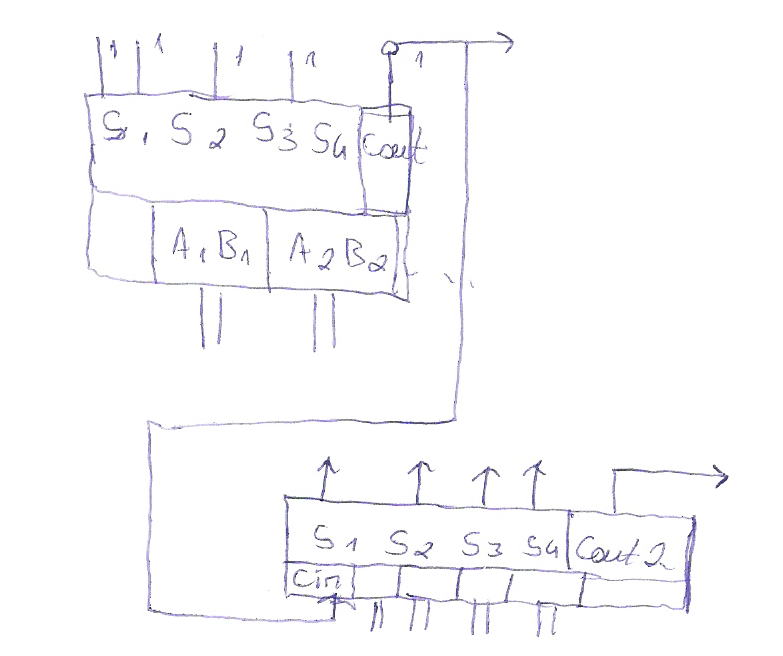 1 1 1 1 1
S1 S2 S3 S4 Cout
A1 B1 A2 B2
S1 S2 S3 S4 Cout2
Cin